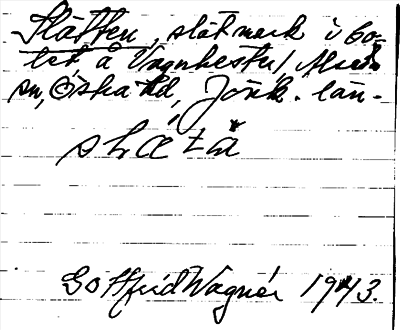 Slätten, slåtmark i Go-
tet å Vagnhester, Mad
sn, Östra hd, Jönk. län.
slætä
Gottfrid Wagnér 1943.